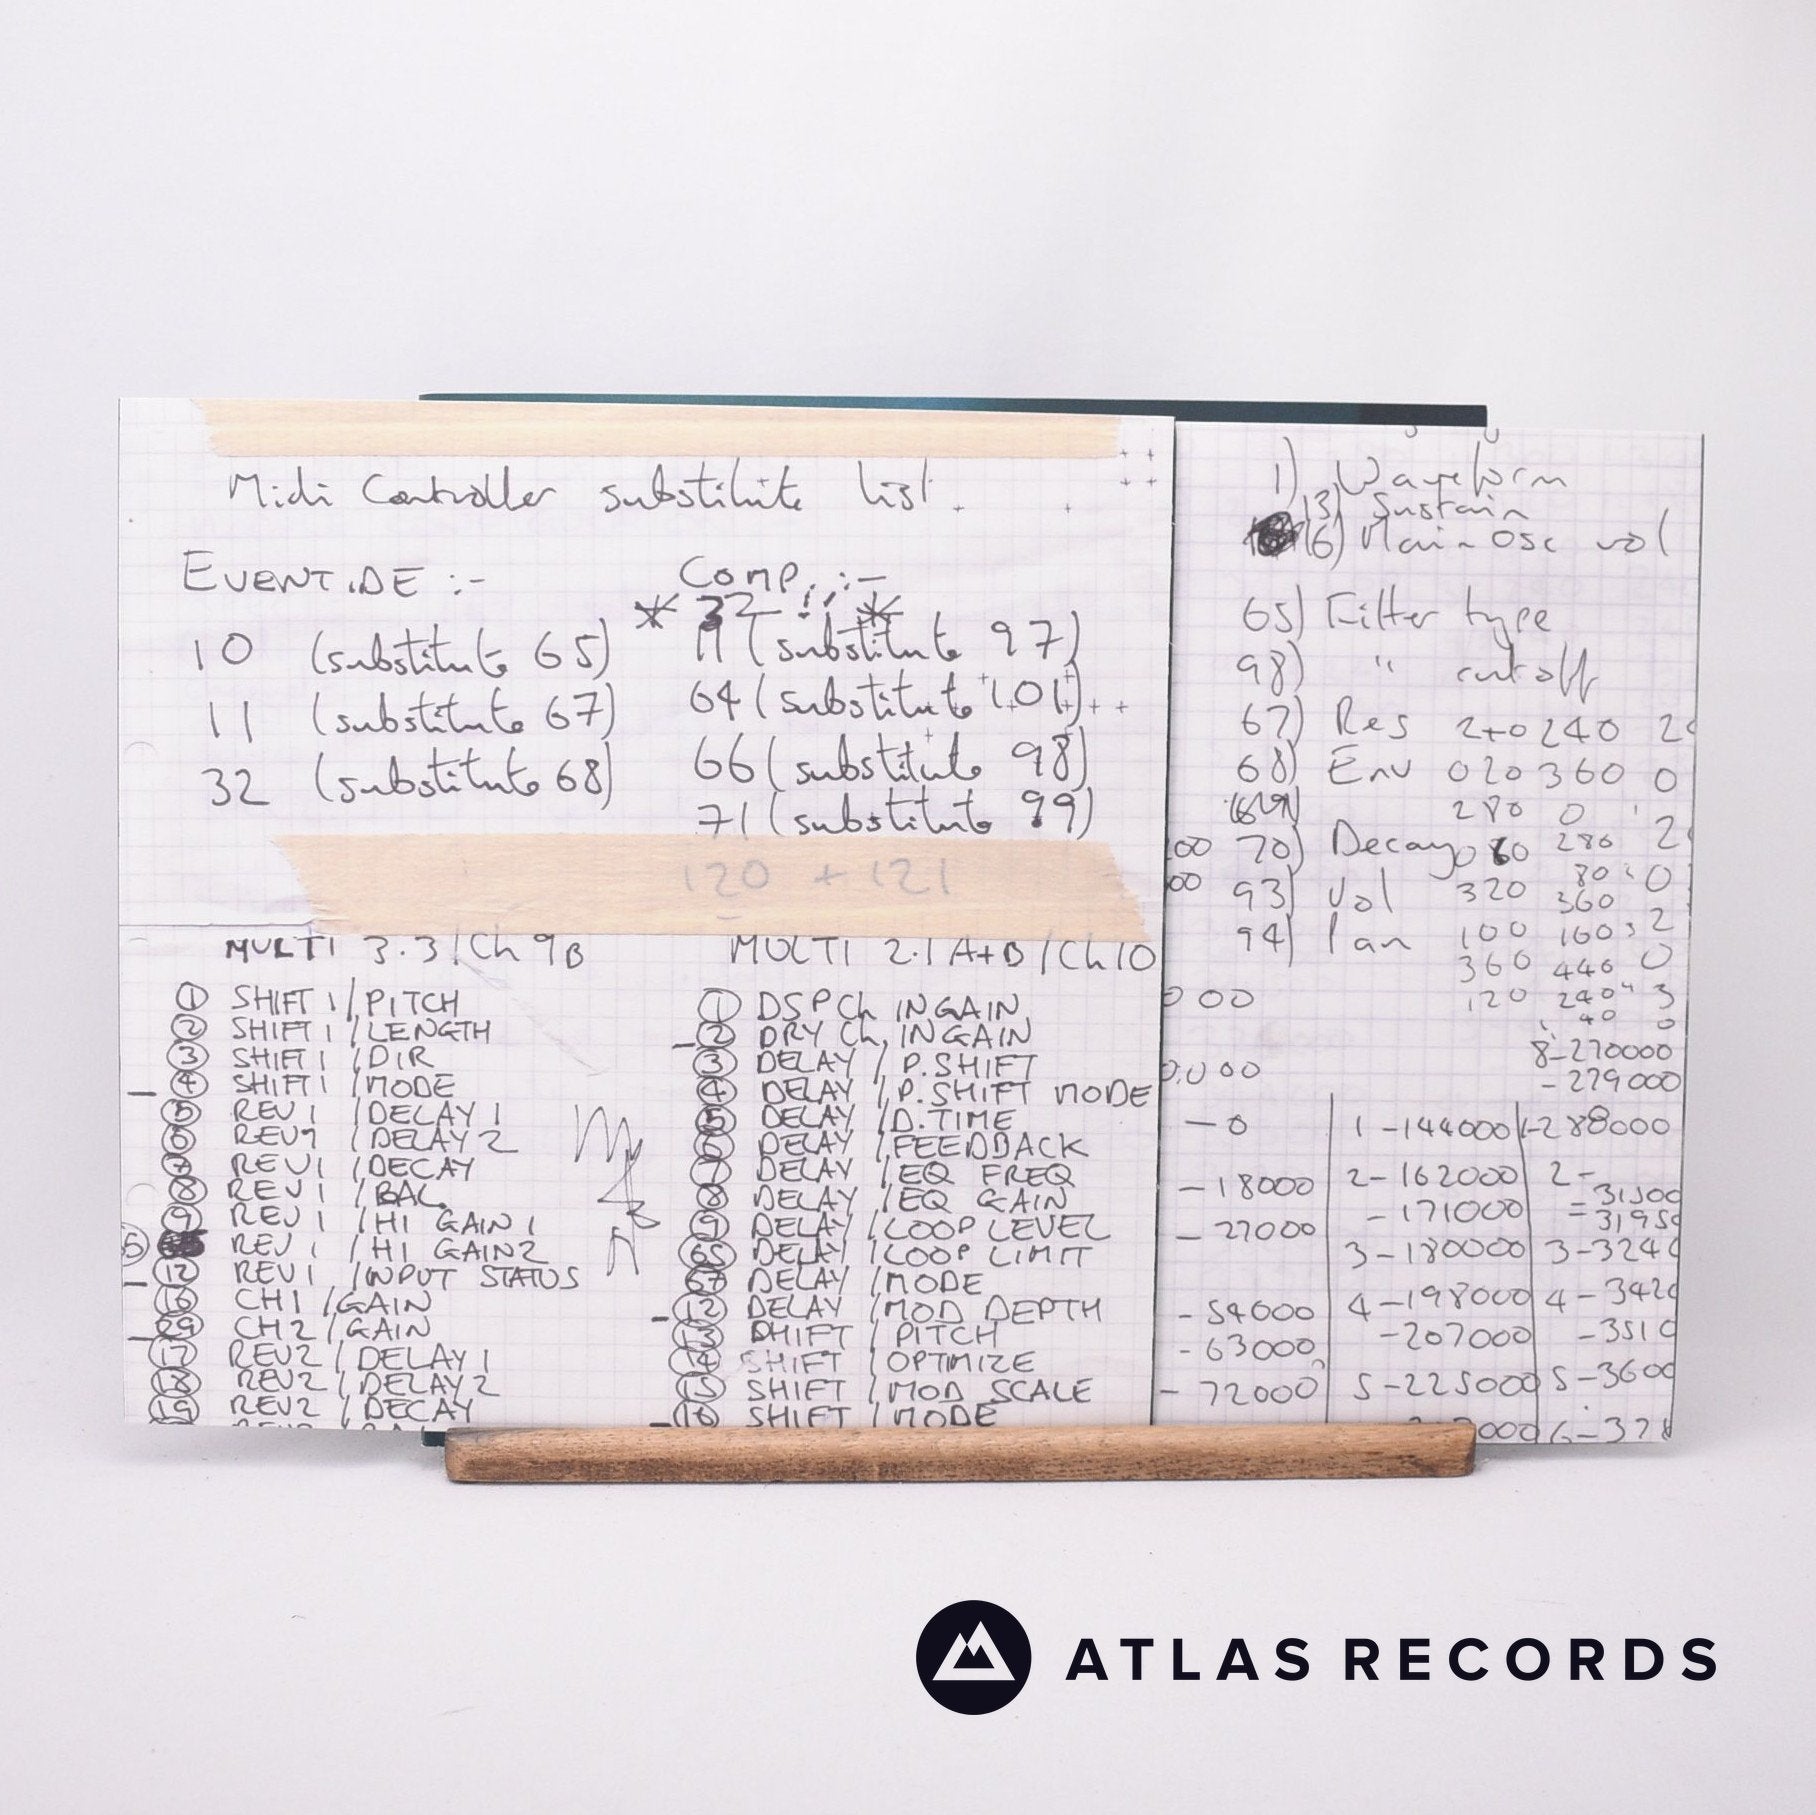 Midi Controller substitute list.
EVENTIDE :-
10 (substitute 65)
11 (substitute 67)
32 (substitute 68)
Comp. :-
* 32 *
11 (substitute 97)
64 (substitute 101)
66 (substitute 98)
71 (substitute 99)
120 + 121
MULTI 3.3 / Ch 9B
① SHIFT 1 / PITCH
② SHIFT 1 / LENGTH
③ SHIFT 1 / DIR
④ SHIFT 1 / MODE
⑤ REV 1 / DELAY 1
REV1 / DELAY 2
REV 1 / DECAY
⑧ REV 1 / BAL
⑨ REV 1 / HI GAIN 1
REV 1 / HI GAIN 2
⑫ REV 1 / INPUT STATUS
CH 1 / GAIN
CH 2 / GAIN
⑰ REV2 / DELAY 1
⑱ REV2 / DELAY 2
⑲ REV2 / DECAY
MULTI 2.1 A+B / Ch 10
① DSP Ch IN GAIN
② DRY Ch IN GAIN
③ DELAY / P.SHIFT
④ DELAY / P.SHIFT MODE
⑤ DELAY / D.TIME
⑥ DELAY / FEEDBACK
⑦ DELAY / EQ FREQ
⑧ DELAY / EQ GAIN
⑨ DELAY / LOOP LEVEL
65 DELAY / LOOP LIMIT
67 DELAY / MODE
⑫ DELAY / MOD DEPTH
⑬ SHIFT / PITCH
⑭ SHIFT / OPTIMIZE
⑮ SHIFT / MOD SCALE
⑯ SHIFT / MODE
1) Waveform
13) Sustain
16) Main Osc vol
65) Filter type
98) " cut off
67) Res 240 240
68) Env 020 360 0
280 0
70) Decay 280
93) Vol 320 360
94) Pan 100 160
360 440 0
120 240 3
40 0
8-270000
-279000
-0 1 -144000 288000
-18000 2-162000 2-
-27000 -171000
3-180000
-54000 4-198000
-63000 -207000
-72000 5-225000
ATLAS RECORDS